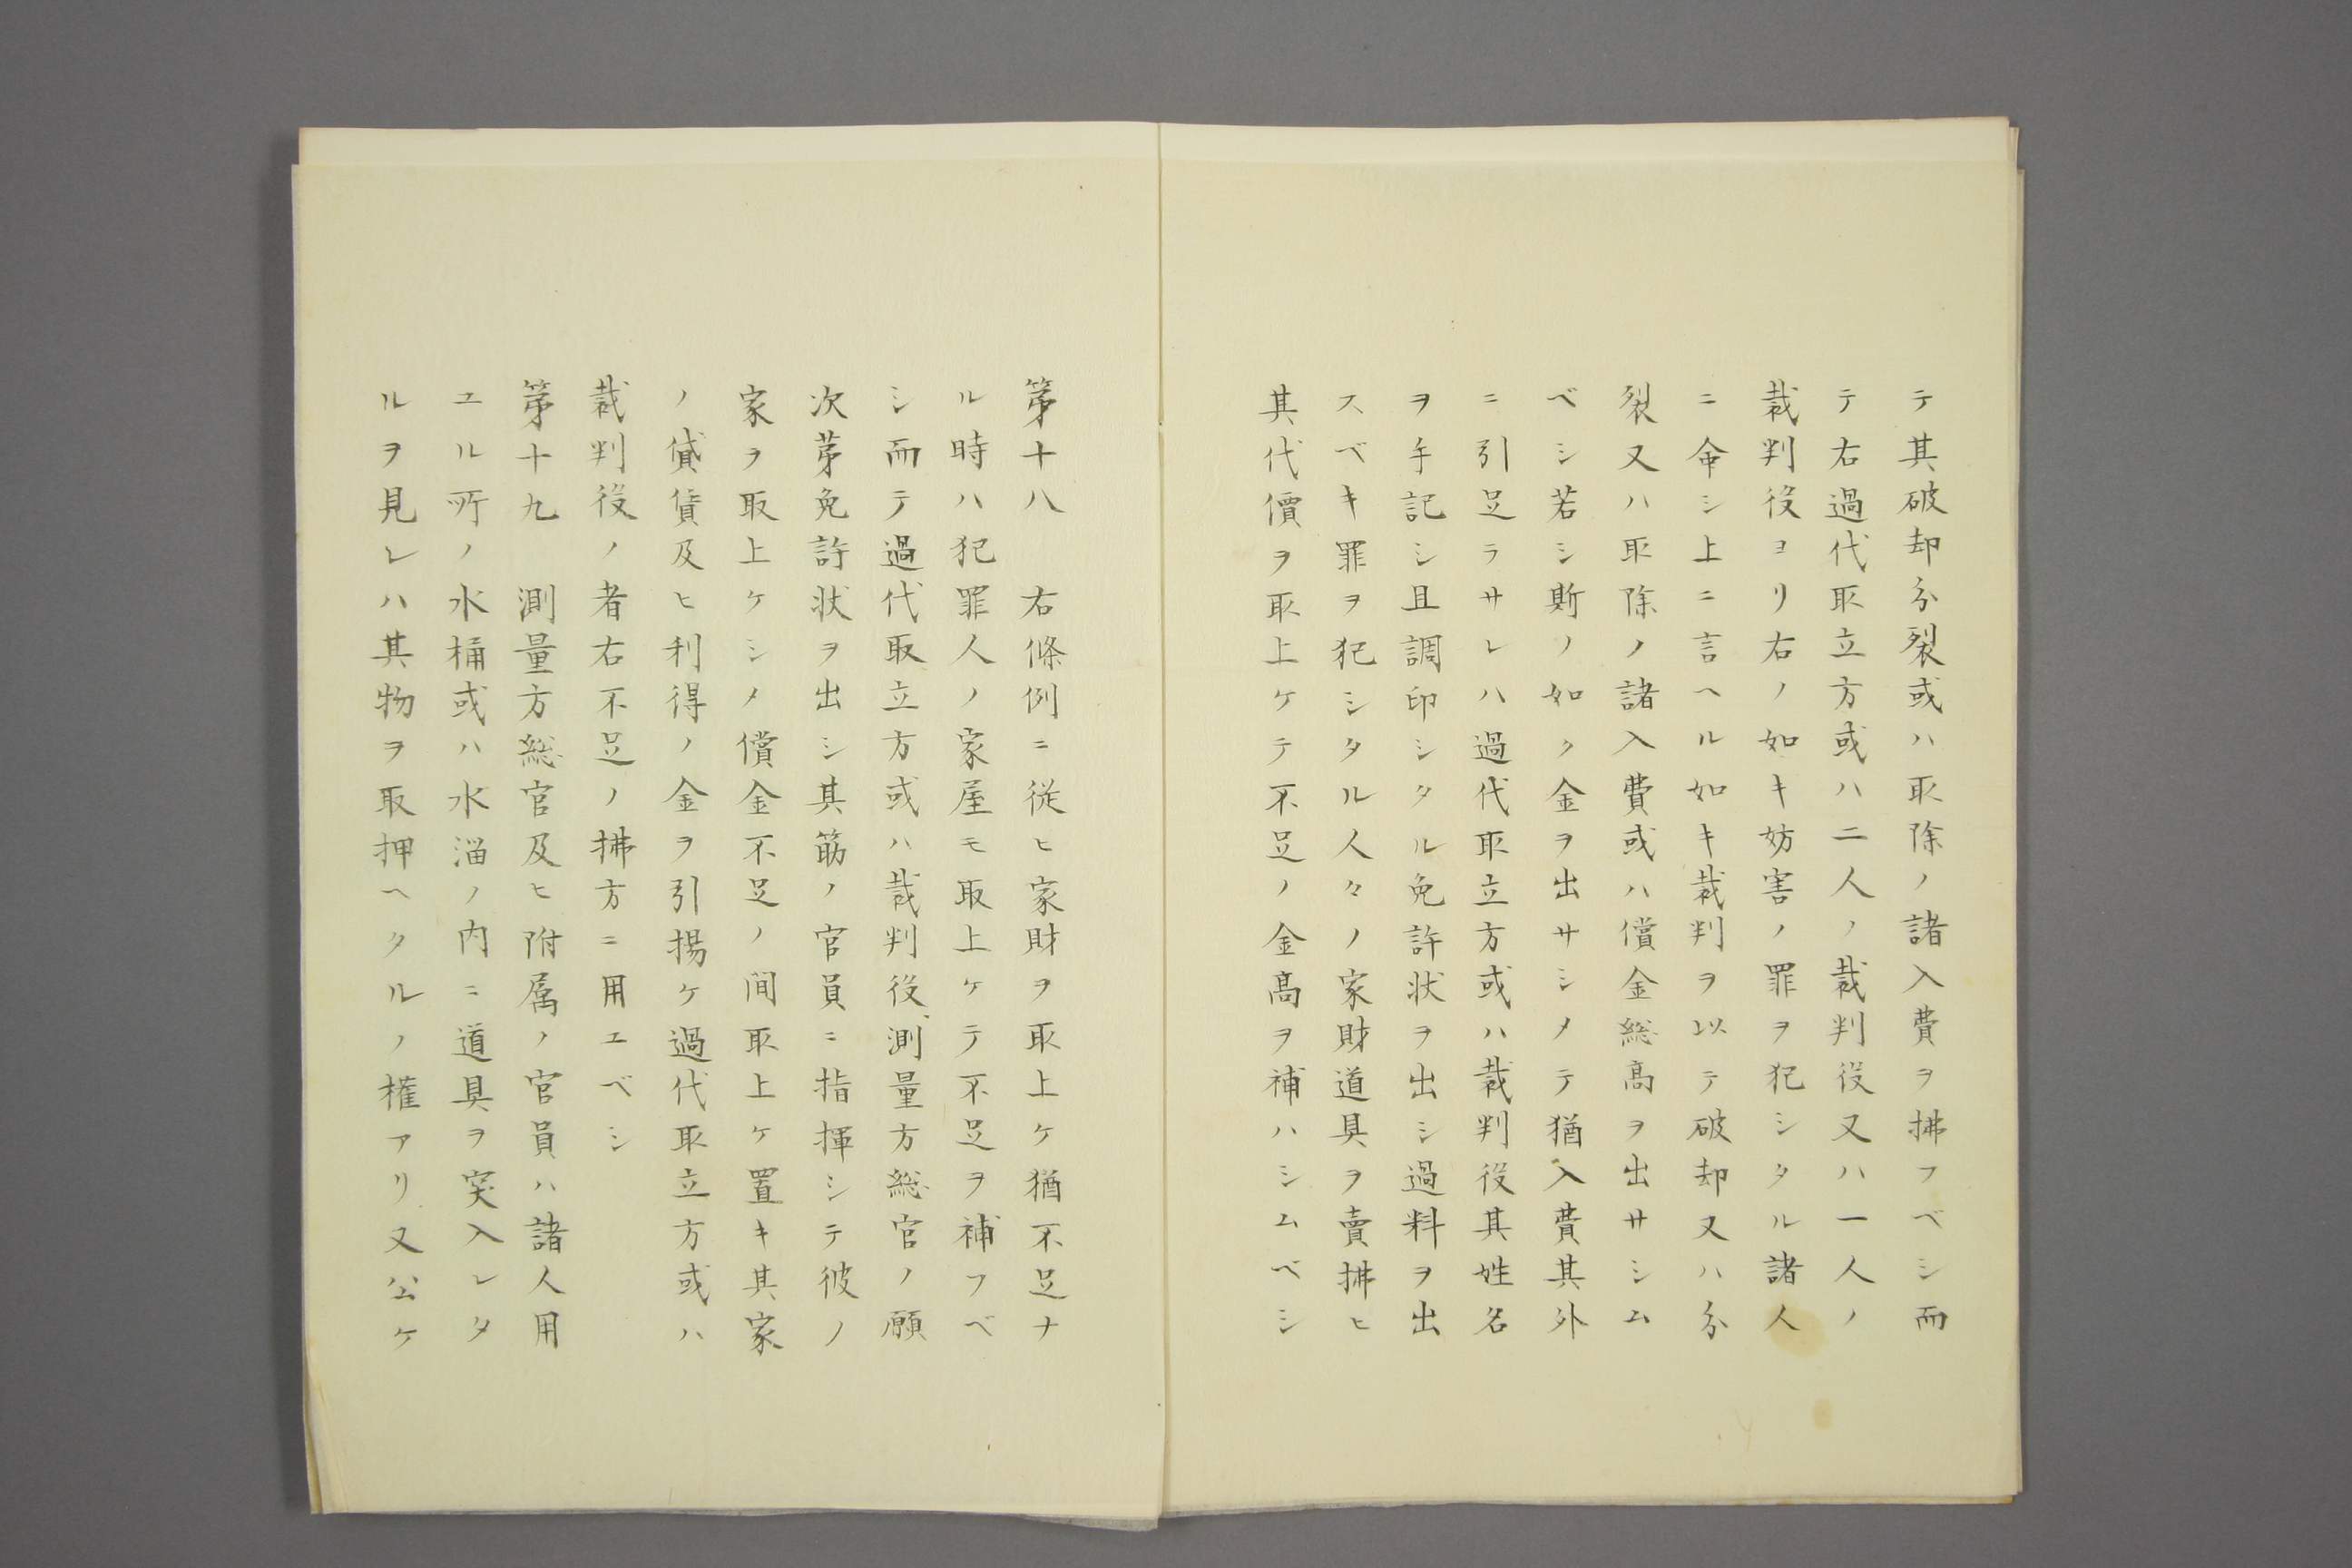 テ其破却分裂或ハ取除ノ諸入費ヲ拂フベシ而
テ右過代取立方或ハ二人ノ裁判役又ハ一人ノ
裁判役ヨリ右ノ如キ妨害ノ罪ヲ犯シタル諸人
ニ命シ上ニ言ヘル如キ裁判ヲ以テ破却又ハ分
裂又ハ取除ノ諸入費或ハ償金総高ヲ出サシム
ベシ若シ斯ノ如ク金ヲ出サシメテ猶入費其外
ニ引足ラサレハ過代取立方或ハ裁判役其姓名
ヲ手記シ且調印シタル免許状ヲ出シ過料ヲ出
スベキ罪ヲ犯シタル人々ノ家財道具ヲ賣拂ヒ
其代價ヲ取上ケテ不足ノ金高ヲ補ハシムベシ
第十八　右條例ニ従ヒ家財ヲ取上ケ猶不足ナ
ル時ハ犯罪人ノ家屋モ取上ケテ不足ヲ補フベ
シ而テ過代取立方或ハ裁判役測量方総官ノ願
次第免許状ヲ出シ其筋ノ官員ニ指揮シテ彼ノ
家ヲ取上ケシメ償金不足ノ間取上ケ置キ其家
ノ貸賃及ヒ利得ノ金ヲ引揚ケ過代取立方或ハ
裁判役ノ者右不足ノ拂方ニ用ユベシ
第十九　測量方総官及ヒ附属ノ官員ハ諸人用
ユル所ノ水桶或ハ水溜ノ内ニ道具ヲ突入レタ
ルヲ見レハ其物ヲ取押ヘクルノ権アリ又公ケ